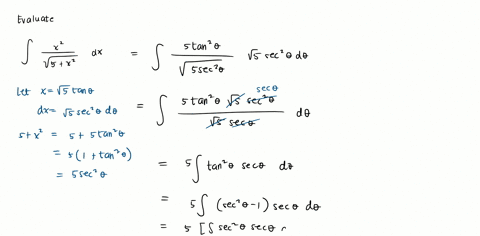 Evaluate
∫ x²/√(5+x²) dx = ∫ 5tan²θ/√(5sec²θ) √5 sec²θ dθ
Let x=√5 tanθ
dx=√5 sec²θ dθ
= ∫ 5tan²θ √5 sec²θ secθ/√5 secθ dθ
5+x² = 5+5tan²θ
= 5(1+tan²θ)
= 5sec²θ
= 5∫ tan²θ secθ dθ
= 5∫ (sec²θ-1) secθ dθ
= 5 [∫ sec²θ secθ